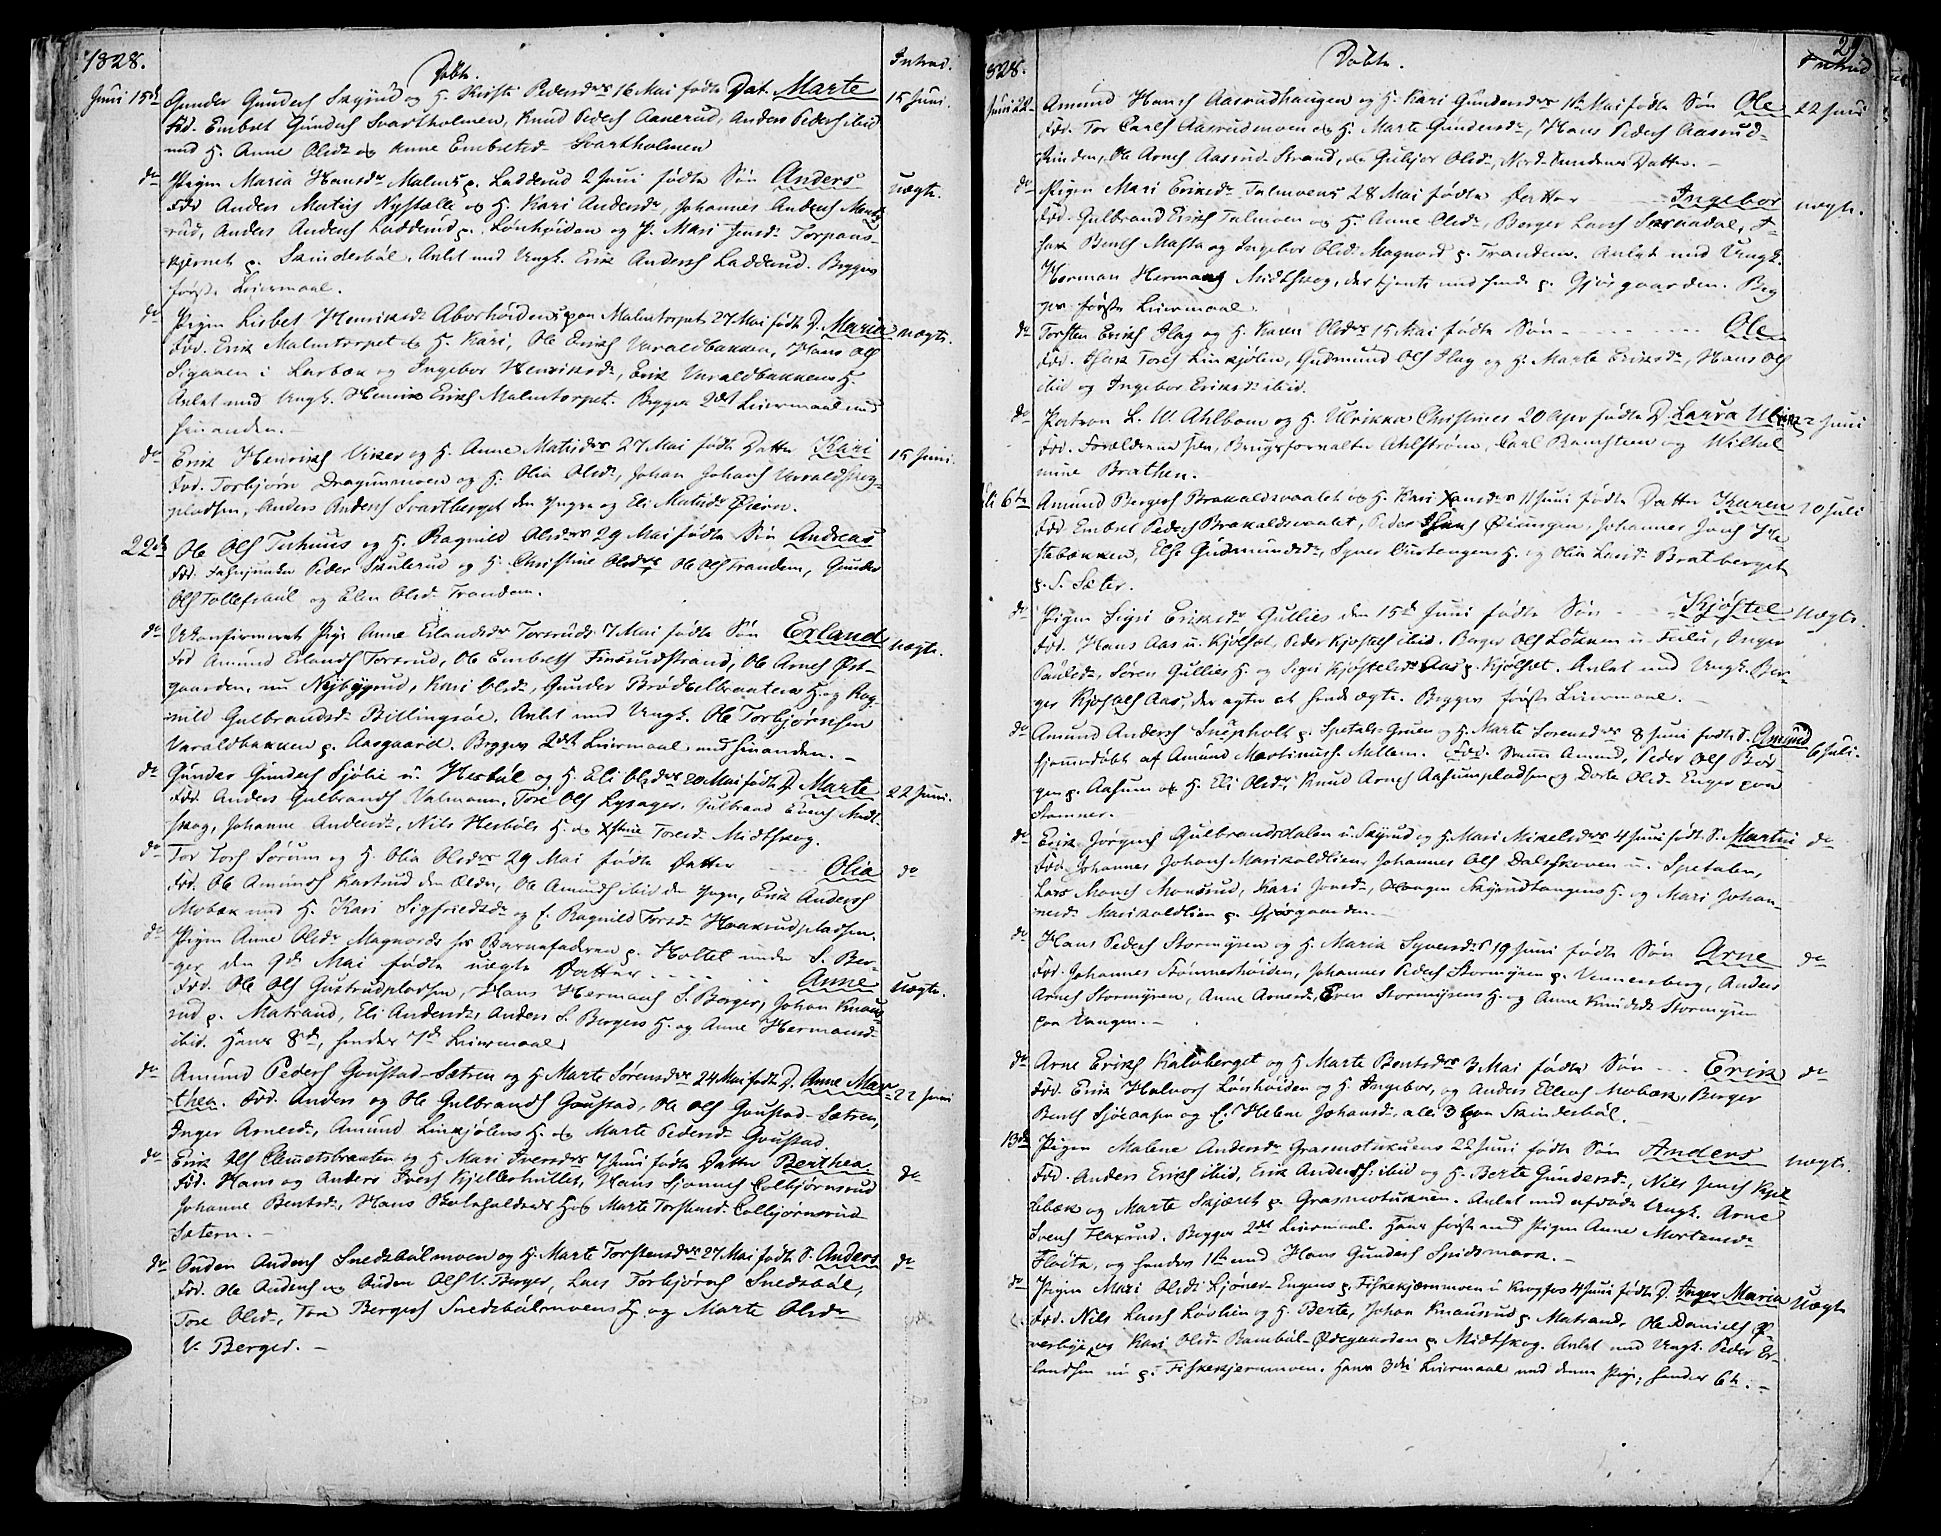 1828.
Døbte.
Introd.
Juni 15de Gunder Gunders Skyrud og H. Kirsti Pedersdrs 16 Mai fødte Dat. Marte 15 Juni.
Fad. Embret Gunders Svartholmen, Knud Peders Aanerud, Anders Peders ibid
med H. Anne Olsdr og Anne Embretsd. Svartholmen
do Pigen Maria Hansdr Malms p. Ladderud 2 Juni fødte Søn Anders uægte.
Fad. Anders Matis Nystalle og H. Kari Andersdr, Johannes Anders
rud, Anders Anders Ladderud p. Lønhøiden og P. Mari Torpens-
kjernet p. Skinderbøl. Anlet med Ungk. Erik Anders Ladderud. Begges
første Leiermaal.
do Pigen Lisbet Henriksdr Aborhøidens paa Malmtorpet 27 Mai fødte D. Maria uægte.
Fad. Erik Malmtorpet og H. Kari, Ole Eriks Varaldbakken, Hans Ols
Sigaaen i Larbæk og Ingebor Henriksdr, Erik Varaldbakkens H.
Anlet med Ungk. Henrik Eriks Malmtorpet. Begges 2det Leiermaal med
hinanden.
do Erik Henriks Viker og H. Anne Matisdrs 27 Mai fødte Datter Kari 15 Juni.
Fad. Torbjørn Dragunmoen og H. Olia Olsdr, Johan Johans Varaldskog-
pladsen, Anders Anders Svartberget den Yngre og Eli Matisdr Øiern.
22de Ole Ols Terhuus og H. Ragnild Olsdrs 29 Mai fødte Søn Andreas
Fad. Fahnjunker Peder Skulerud og H. Christine Olsdr Ole Ols Trandem, Gunder
Ols Tollefsbøl og Elen Olsd. Trandem.
do Ukonfirmeret Pige Anne Erlandsdr Torsruds 7 Mai fødte Søn Erland uægte.
Fad. Amund Erlands Torsrud, Ole Embrets Finsrudstrand, Ole Arnes Øst-
gaarden, nu Nybygrud, Kari Olsdr, Gunder Brødbølbraatens H. og Rag-
nild Gulbrandsd. Billingsøe. Anlet med Ungk. Ole Torbjørnsen
Varaldbakken p. Aasgaard. Begges 2det Leiermaal med hinanden.
do Gunder Gunders Sjølie u. Hesbøl og H. Eli Olsdrs 20 Mai fødte D. Marte 22 Juni.
Fad. Anders Gulbrands Valmoen, Tore Ols Lysager, Gulbrand Evens Midt-
skog, Johanne Andersdr, Nils Hesbøls H. og Kstine Toresd. Midtskog.
do Tor Tors Sørum og H. Olia Olsdrs 29 Mai fødte Datter Olia do
Fad. Ole Amunds Kastrud den Ældre, Ole Amunds ibid den Yngre, Erik Anders
Mobæk med H. Kari Sigfriedsdr og f. Ragnild Torsd. Haaksrudpladsen.
do Pigen Anne Olsdr Magnords hos Barnefaderen p. Holtet under S. Ber-
ger den 9de Mai fødte uægte Datter Anne Uægte.
Fad. Ole Ols Gustrudpladsen, Hans Hermans S. Berger, Johan Knaus-
rud p. Matrand, Eli Andersdr, Anders S. Bergers H. og Anne Hermansd.
ibid. Hans 8de, hendes 7de Leiermaal.
do Amund Peders Goustad-Sætren og H. Marte Sørensdrs 24 Mai fødte D. Anne Mar- 22 Juni
thea. Fad. Anders og Ole Gulbrands Goustad, Ole Ols Goustad-Sætren,
Inger Arnesdr, Amund Linkjølens H. og Marte Pedersd. Goustad.
do Erik Ols Clemetsbraaten og H. Mari Iversdrs 7 Juni fødte Datter Berthea do
Fad. Hans og Anders Ivers Kjellerhullet, Hans Colbjørnsrud
Johanne Bentsdr, Hans H. og Marte Torstensd. Colbjørnsrud
Sætern.
do Auden Audens Snedsbølmoen og H. Marte Torstensdrs 27 Mai fødte S. Anders do
Fad. Ole Audens og Auden Ols V. Berger, Lars Torbjørns Snedsbøl,
Tore Olsdr, Tore Bergers Snedsbølmoens H. og Marte Olsdr
V. Berger.
1828.
Døbte.
29
Introd
Juni 22de Amund Hans Aasrudhaugen og H. Kari Gundersdrs 1te Mai fødte Søn Ole 22 Juni
Fad. Tor Carls Aasrudmoen og H. Marte Gundersdr, Hans Peders Aasrud-
kinden, Ole Arnes Aasrud-Strand, og Gubjør Olsdr, Nord-Sundens Datter.
do Pigen Mari Eriksdr Talmoens 28 Mai fødte Datter Ingebor uægte.
Fad. Gulbrand Eriks Talmoen og H. Anne Olsdr, Berger Lars Skrandal, I-
sak Bents Masta og Ingebor Olsdr Magnord p. Trandem. Anlet med Ungk.
Herman Hermans Midtskog, der tjente med hende p. Gjørgaarden. Beg-
ges første Leiermaal.
do Torsten Eriks Flag og H. Karen Olsdrs 15 Mai fødte Søn Ole
Fad. Isak Tores Linkjølen, Gudmund Ols Flag og H. Marte Eriksdr, Hans Ols
ibid og Ingebor Eriksdr ibid.
do Patron L. W. Ahlbom og H. Ulrikka Christines 20 Apr fødte D. Laura Ulrikka 22 Juni
Fad. Forældrene selv, Brugsforvalter Ahlstrøm, Carl Bamsteen og Wilhel-
mine Brathen.
Juli 6te Amund Bergers Brakaldsvaalet og H. Kari Hansdrs 11 Juni fødte Datter Karen 20 Juli
Fad. Embret Peders Brakaldsvaalet, Peder Hans Øiungen, Johannes Jons
stebakken, Else Gudmundsdr, Syver Austengens H. og Olia Larsdr Bratberget
p. S. Sæter.
do Pigen Sigri Eriksdr Gullies den 15de Juni fødte Søn Kjøstel Uægte.
Fad. Hans Aas u. Kjølset, Peder Kjøstels ibid. Berger Ols Løkken u. Fuli, Inger
Paulsdr, Søren Gullies H. og Sigri Kjøstelsdr Aas p. Kjølset. Anlet med Ungk. Ber-
ger Kjøstels Aas, der agter at hende ægte. Begges første Leiermaal.
do Amund Anders Sneipholt p. Spetals-Gruen og H. Marte Sørensdrs 8 Juni fødte S. Amund 6 Juli.
hjemmedøbt af Amund Martinus Mellem. Fad. Samme Amund, Peder Ols Bør-
gen p. Aasum og H. Eli Olsdr, Knud Arnes Aasumpladsen og Dorte Olsd. Enger paa
Stomner.
do Erik Jørgens Gulbrandsdalen u. Skyrud og H. Mari Mikelsdrs 4 Juni fødte S. Martin do
Fad. Johannes Johans Marikoldlien, Johannes Ols Dalsskoven u. Spetalen,
Lars Mons Monsrud, Kari Jonsdr, Haagen Skyrudtangens H. og Mari Johan-
nesdr Marikoldlien p. Gjørgaarden.
do Hans Peders Stormyren og H. Maria Syversdrs 19 Juni fødte Søn Arne do
Fad. Johannes Stømnerhøiden, Johannes Peders Stormyren p. Vennersberg, Anders
Arnes Stormyren, Anne Arnesdr, Even Stormyrens H. og Anne Knudsdr Stormyren
paa Vangen.
do Arne Eriks Kalvberget og H. Marte Bentsdrs 3 Mai fødte Søn Erik do
Fad. Erik Halvors Lønhøiden og H. Ingebor, og Anders Ellevs Mobæk, Berger
Bents Sjøeaasen og f. Helene Johansdr, alle 3 paa Skinderbøl.
13de Pigen Malene Andersdr Grasmotukuens 22 Juni fødte Søn Anders uægte.
Fad. Anders Eriks ibid, Erik Anders ibid og H. Berte Gundersdr, Nils Jens Kjel-
lebæk og Marte Skjæret p. Grasmotukuen. Anlet med afdøde Ungk. Arne
Svens Flaxrud. Begges 2det Leiermaal. Hans første med Pigen Anne Mortensdr
Fløita, og hendes 1te med Hans Gunders Spidsmark.
do Pigen Mari Olsdr Engens p. Fiskekjærnmoen u. Krogfos 4 Juni fødte D. Inger Maria Uægte
Fad. Nils Lars Løvlien og H. Berte, Johan Knausrud p. Matrand, Ole Daniels Ø-
verbye, og Kari Olsdr Bambøl-Ødegaarden p. Midtskog. Anlet med Ungk. Peder Er-
landsen nu p. Fiskekjernmoen. Hans 3die Leiermaal med denne Pige, hendes 6te.